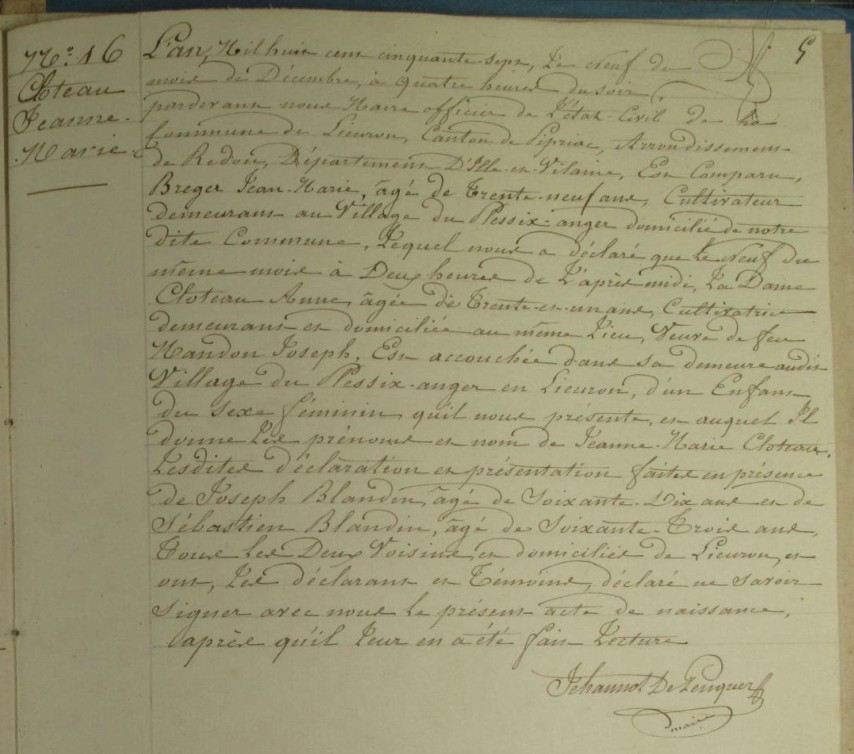 N.° 16
Cloteau
Jeanne-
Marie
5
L'an, Mil huit cent cinquante sept, Le Neuf du
mois de Décembre, à Quatre heures du soir
pardevant nous Maire officier de L'état-Civil de La
Commune de Lieuron, Canton de Pipriac, Arrondissement
de Redon, Département D'Ille-et-Vilaine, Est Comparu,
Breger Jean-Marie, âgé de Trente-neuf ans, Cultivateur
demeurant au Village du Plessix-anger domicilié de notre
dite Commune, Lequel nous a déclaré que Le Neuf du
même mois à Deux heures de L'après midi, La Dame
Cloteau Anne, âgée de Trente-et-un ans, Cultivatrice
demeurant et domiciliée au même Lieu, Veuve de feu
Handon Joseph, Est accouchée dans sa demeure audit
Village du Plessix-anger en Lieuron, d'un Enfant
du sexe féminin, qu'il nous présente, et auquel Il
donne Les prénoms et nom de Jeanne-Marie Cloteau.
Lesdites déclaration et présentation faites en présence
de Joseph Blandin, âgé de Soixante-Dix ans et de
Sébastien Blandin, âgé de Soixante-Trois ans,
Tous Les Deux Voisins, et domiciliés de Lieuron, et
ont, Les déclarant et Témoins, déclaré ne savoir
Signer avec nous Le présent acte de naissance,
après qu'il Leur en a été fait Lecture
Jehannot De Penquer
maire